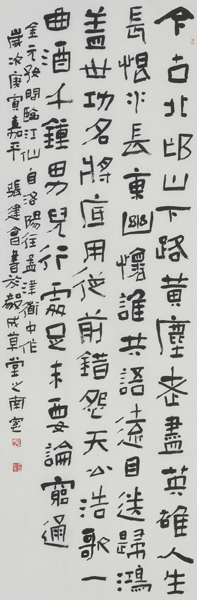 今古北邙山下路黃塵老盡英雄人生
長恨水長東幽懷誰共語遠目送歸鴻
蓋世功名將底用從前錯怨天公浩歌一
曲酒千鍾男兒行處是未要論窮通
金元好問臨江仙 自洛陽往孟津道中作
歲次庚寅嘉平 張建會書於毅成草堂之南窗